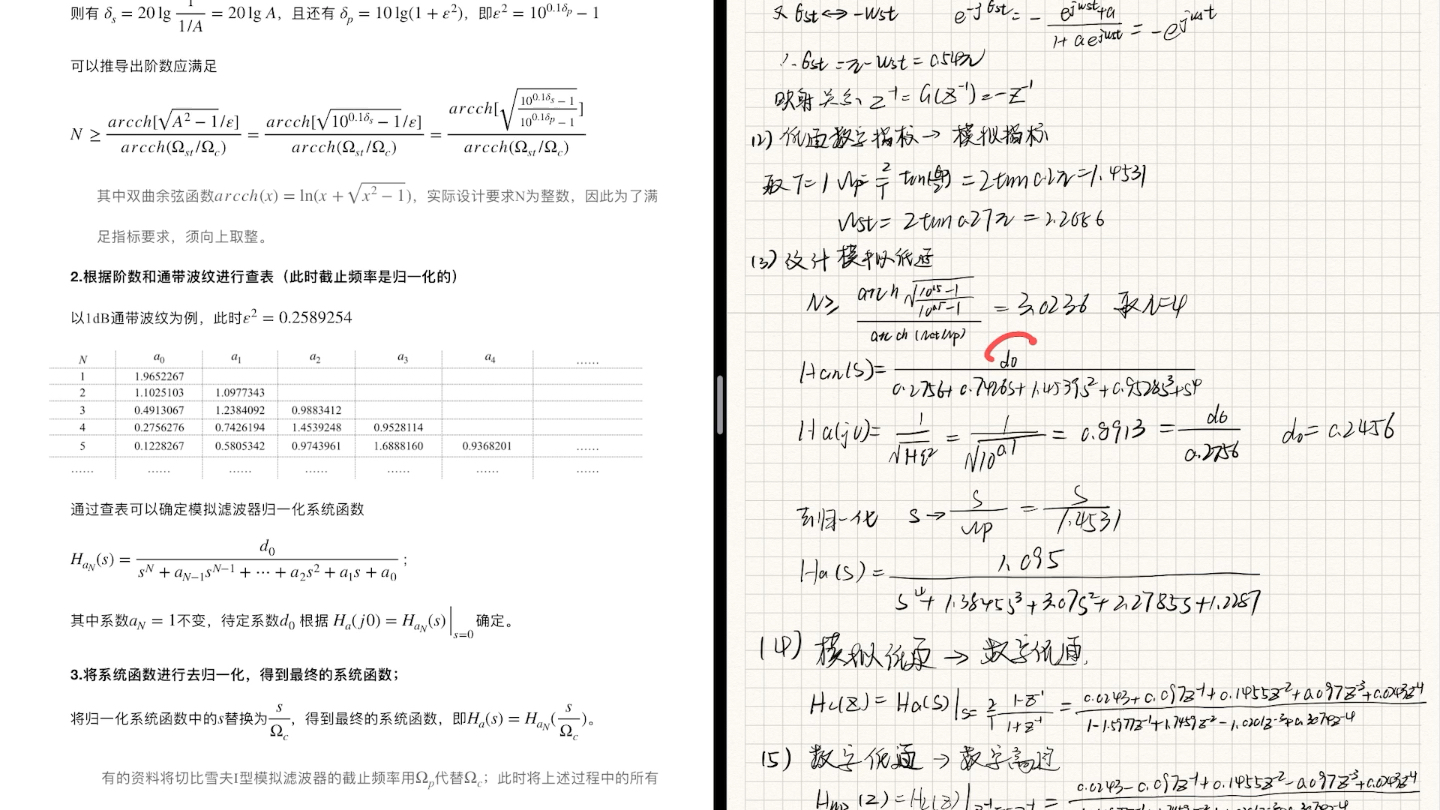 则有 δ_s = 20lg 1/(1/A) = 20lg A，且还有 δ_p = 10lg(1 + ε²)，即ε² = 10^{0.1δ_p} − 1
可以推导出阶数应满足
N ≥ arcch[√(A² − 1)/ε] / arcch(Ω_st/Ω_c) = arcch[√(10^{0.1δ_s} − 1)/ε] / arcch(Ω_st/Ω_c) = arcch[√((10^{0.1δ_s} − 1)/(10^{0.1δ_p} − 1))] / arcch(Ω_st/Ω_c)
其中双曲余弦函数arcch(x) = ln(x + √(x² − 1))，实际设计要求N为整数，因此为了满
足指标要求，须向上取整。
2.根据阶数和通带波纹进行查表（此时截止频率是归一化的）
以1dB通带波纹为例，此时ε² = 0.2589254
N a₀ a₁ a₂ a₃ a₄ ……
1 1.9652267
2 1.1025103 1.0977343
3 0.4913067 1.2384092 0.9883412
4 0.2756276 0.7426194 1.4539248 0.9528114
5 0.1228267 0.5805342 0.9743961 1.6888160 0.9368201 ……
…… …… …… …… …… …… ……
通过查表可以确定模拟滤波器归一化系统函数
H_{a_N}(s) = d₀ / (s^N + a_{N−1}s^{N−1} + ⋯ + a₂s² + a₁s + a₀)；
其中系数a_N = 1不变，待定系数d₀ 根据 H_a(j0) = H_{a_N}(s)|_{s=0}确定。
3.将系统函数进行去归一化，得到最终的系统函数；
将归一化系统函数中的s替换为s/Ω_c，得到最终的系统函数，即H_a(s) = H_{a_N}(s/Ω_c)。
有的资料将切比雪夫I型模拟滤波器的截止频率用Ω_p代替Ω_c；此时将上述过程中的所有
又 θst ↔ -wst e^{-jθst} = - (e^{jwst}+a)/(1+ae^{jwst}) = -e^{jwst}
∴ θst = π - wst = 0.54π
映射关系 z⁻¹ = G(Z⁻¹) = -Z⁻¹
(2) 低通数字指标 → 模拟指标
取T=1 Ωp = 2/T tan() = 2tan0.2π = 1.4531
Ωst = 2tan0.27π = 2.2686
(3) 设计模拟低通
N ≥ arch√((10^{1.5}-1)/(10^{0.1}-1)) / arch(Ωst/Ωp) = 3.0236 取N=4
Han(s) = d0 / (0.2756+0.7426s+1.4539s²+0.9528s³+s⁴)
Ha(j0) = 1/√(1+ε²) = 1/√(10^{0.1}) = 0.8913 = d0/0.2756 d0 = 0.2456
去归一化 s → s/Ωp = s/1.4531
Ha(s) = 1.095 / (s⁴+1.3845s³+3.07s²+2.2785s+1.2287)
(4) 模拟低通 → 数字低通
HL(z) = Ha(s)|_{s=2/T (1-z⁻¹)/(1+z⁻¹)} = (0.0243+0.097z⁻¹+0.1455z⁻²+0.097z⁻³+0.0243z⁻⁴) / (1-1.5977z⁻¹+1.7459z⁻²-1.0201z⁻³+0.3074z⁻⁴)
(5) 数字低通 → 数字高通
(z) = HL(z)| = 0.0243-0.097z⁻¹+0.1455z⁻²-0.097z⁻³+0.0243z⁻⁴